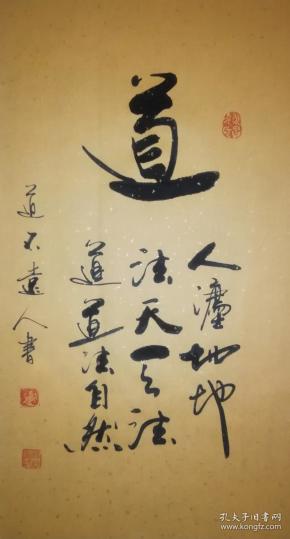 道
人灋地地
法天天法
道道法自然
道不遠人書
孔夫子旧书网
www.kongfz.com